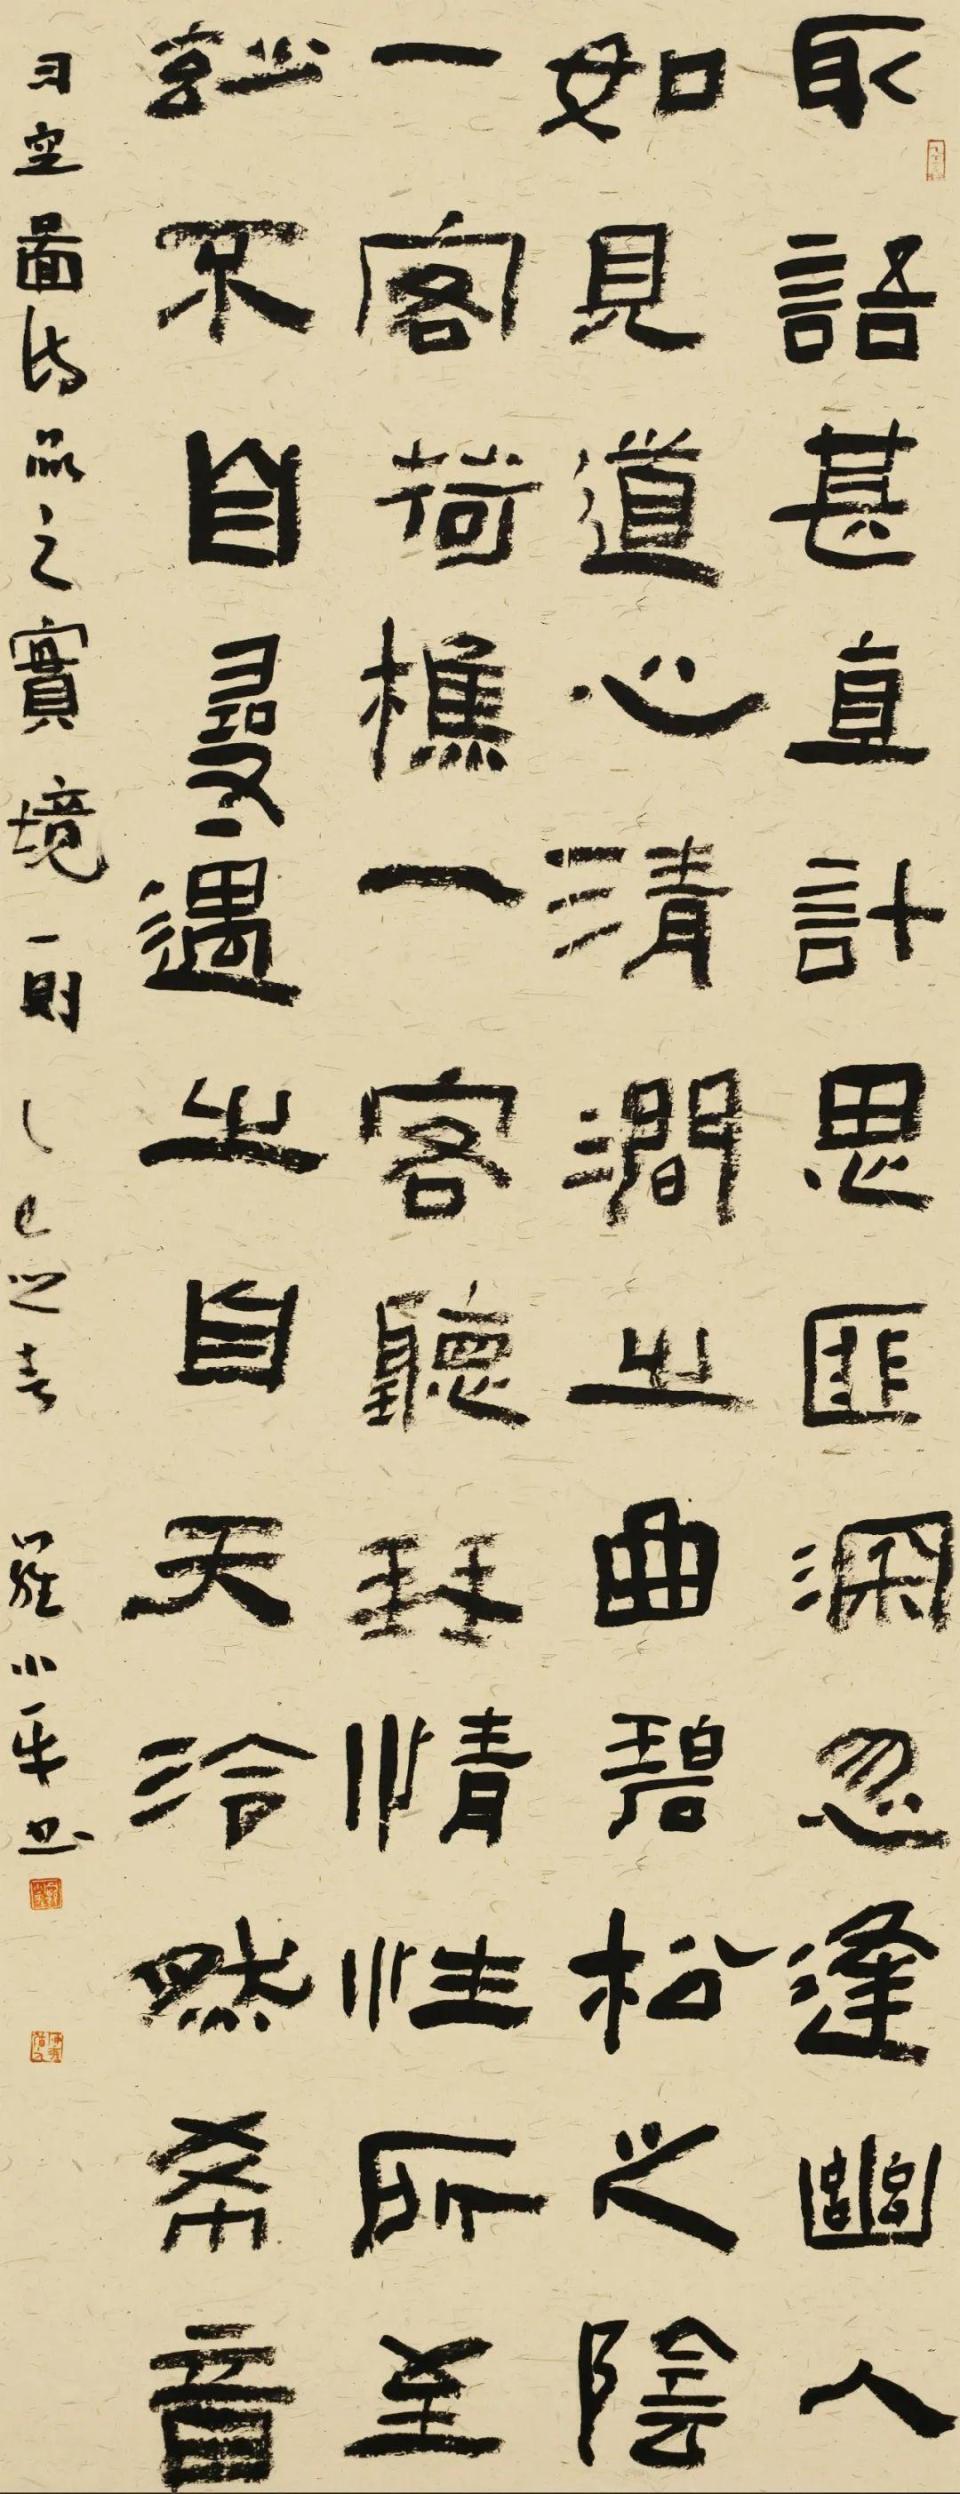 取語甚直計思匪深忽逢幽人
如見道心清澗之曲碧松之陰
一客荷樵一客聽琴情性所至
玅不自尋遇之自天泠然希音
司空圖詩品之實境一則乙巳之春羅小平书